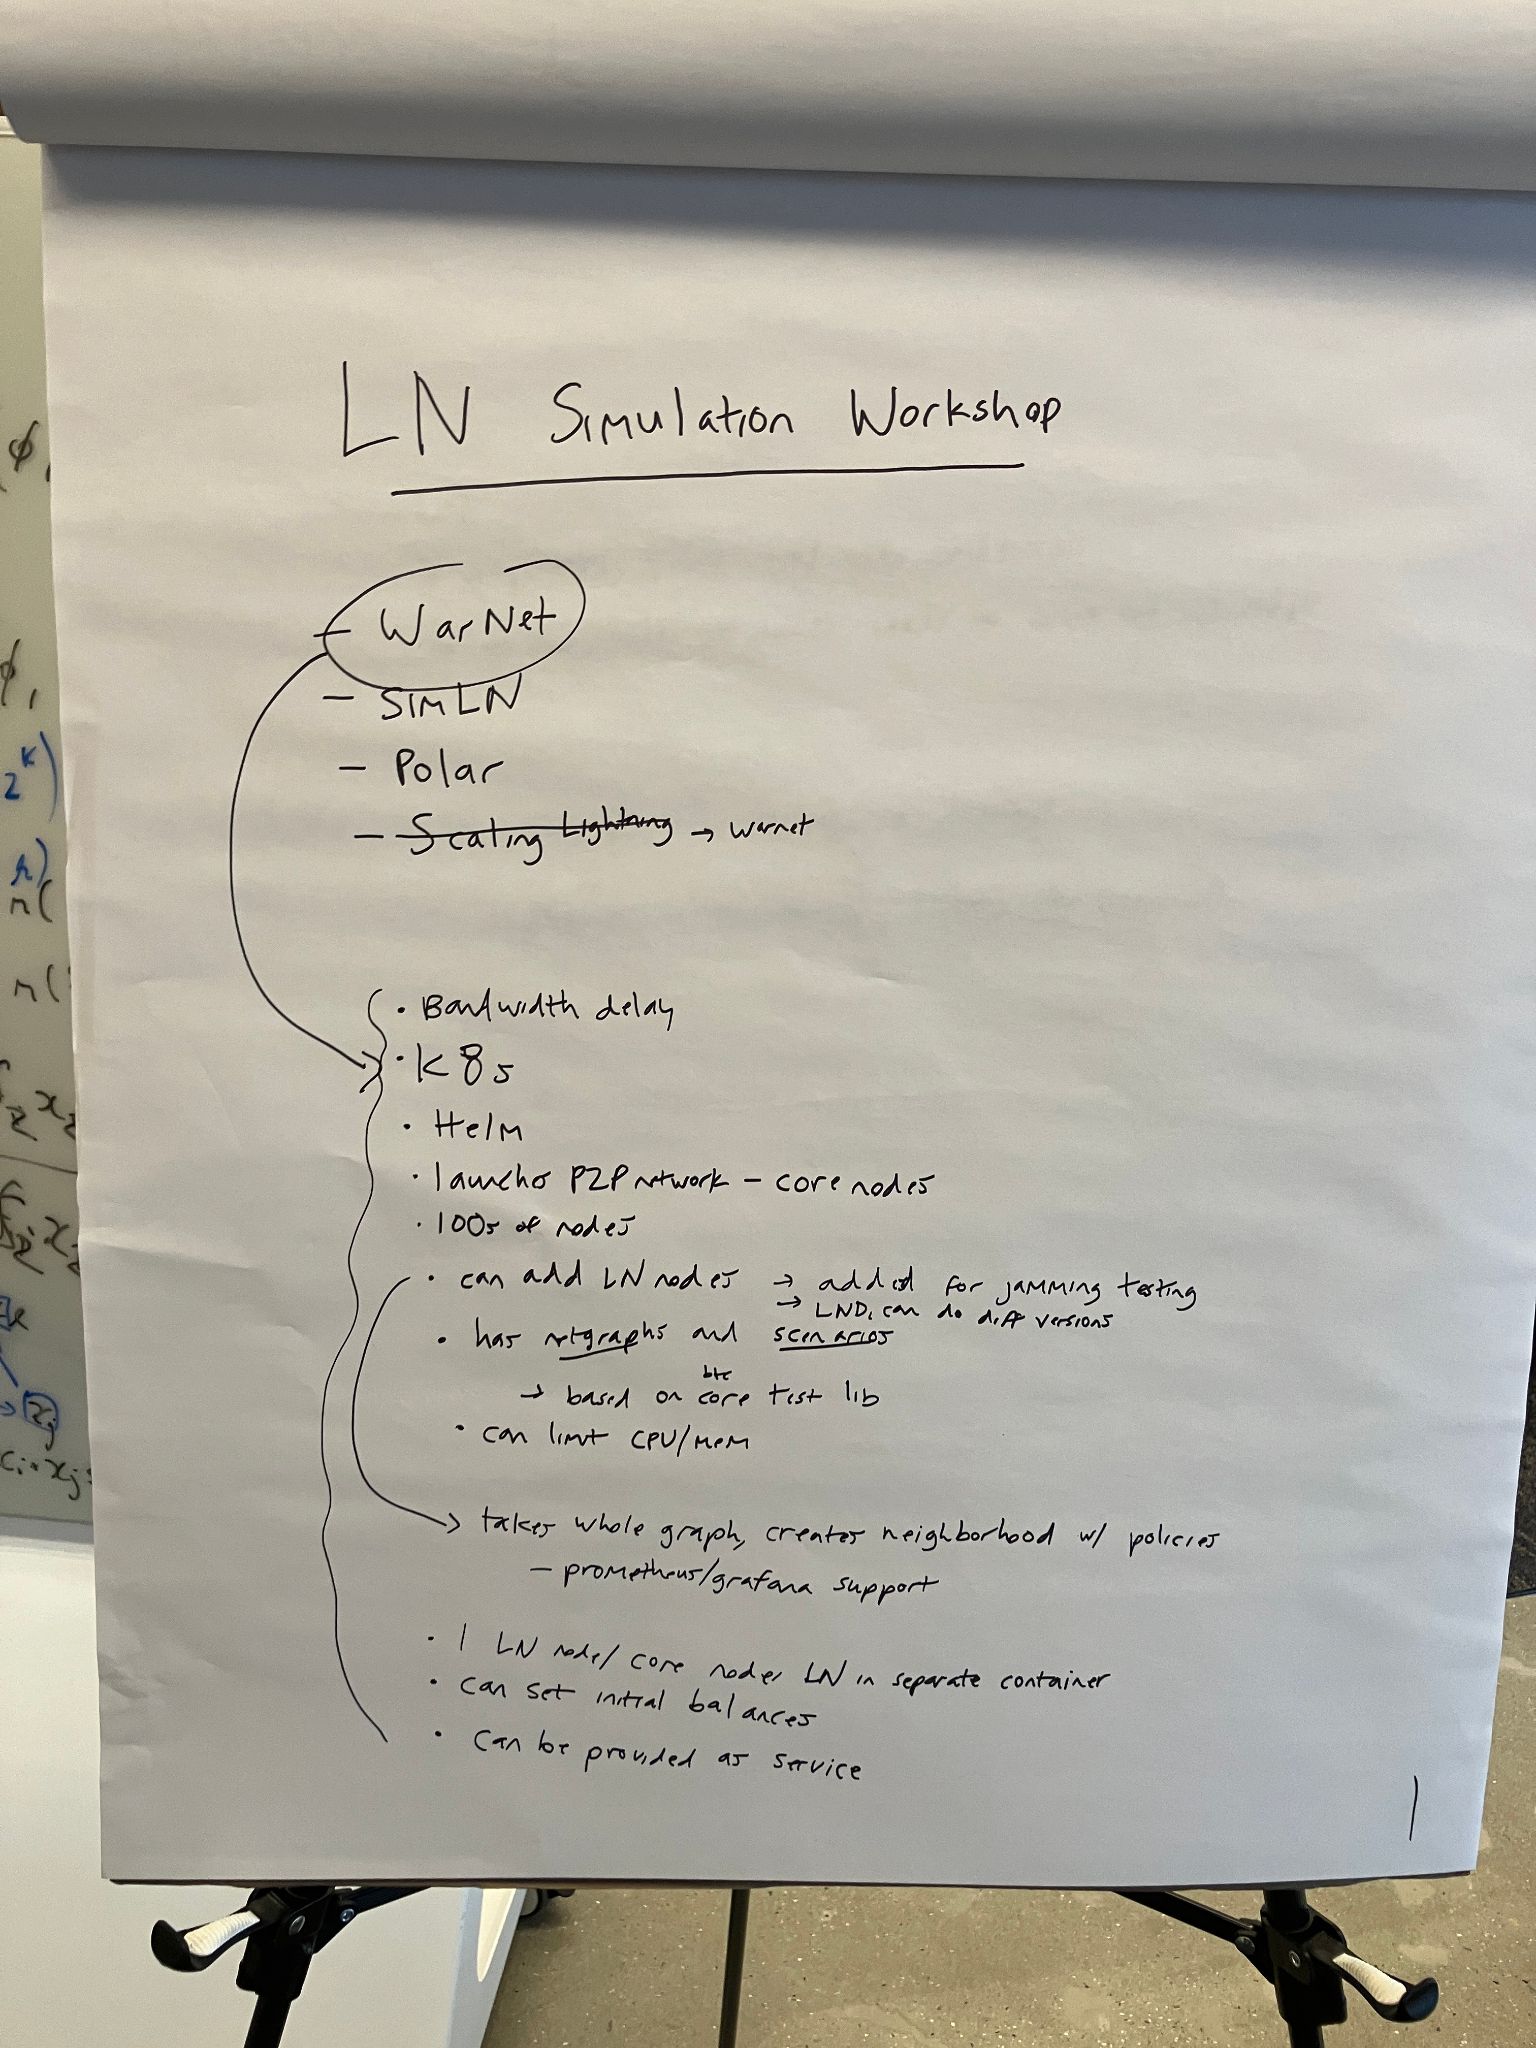 LN Simulation Workshop
- WarNet
- SIMLN
- Polar
- Scaling Lightning → warnet
• Bandwidth delay
• K8s
• Helm
• launches P2P network - core nodes
• 100s of nodes
• can add LN nodes → added for jamming testing
→ LND, can do diff versions
• has netgraphs and scenarios
→ based on btc core test lib
• can limit CPU/MEM
→ takes whole graph, creates neighborhood w/ policies
- prometheus/grafana support
• 1 LN node/core node, LN in separate container
• can set initial balances
• can be provided as service
1
ϕ,
ϕ,
2^k)
n(
n(